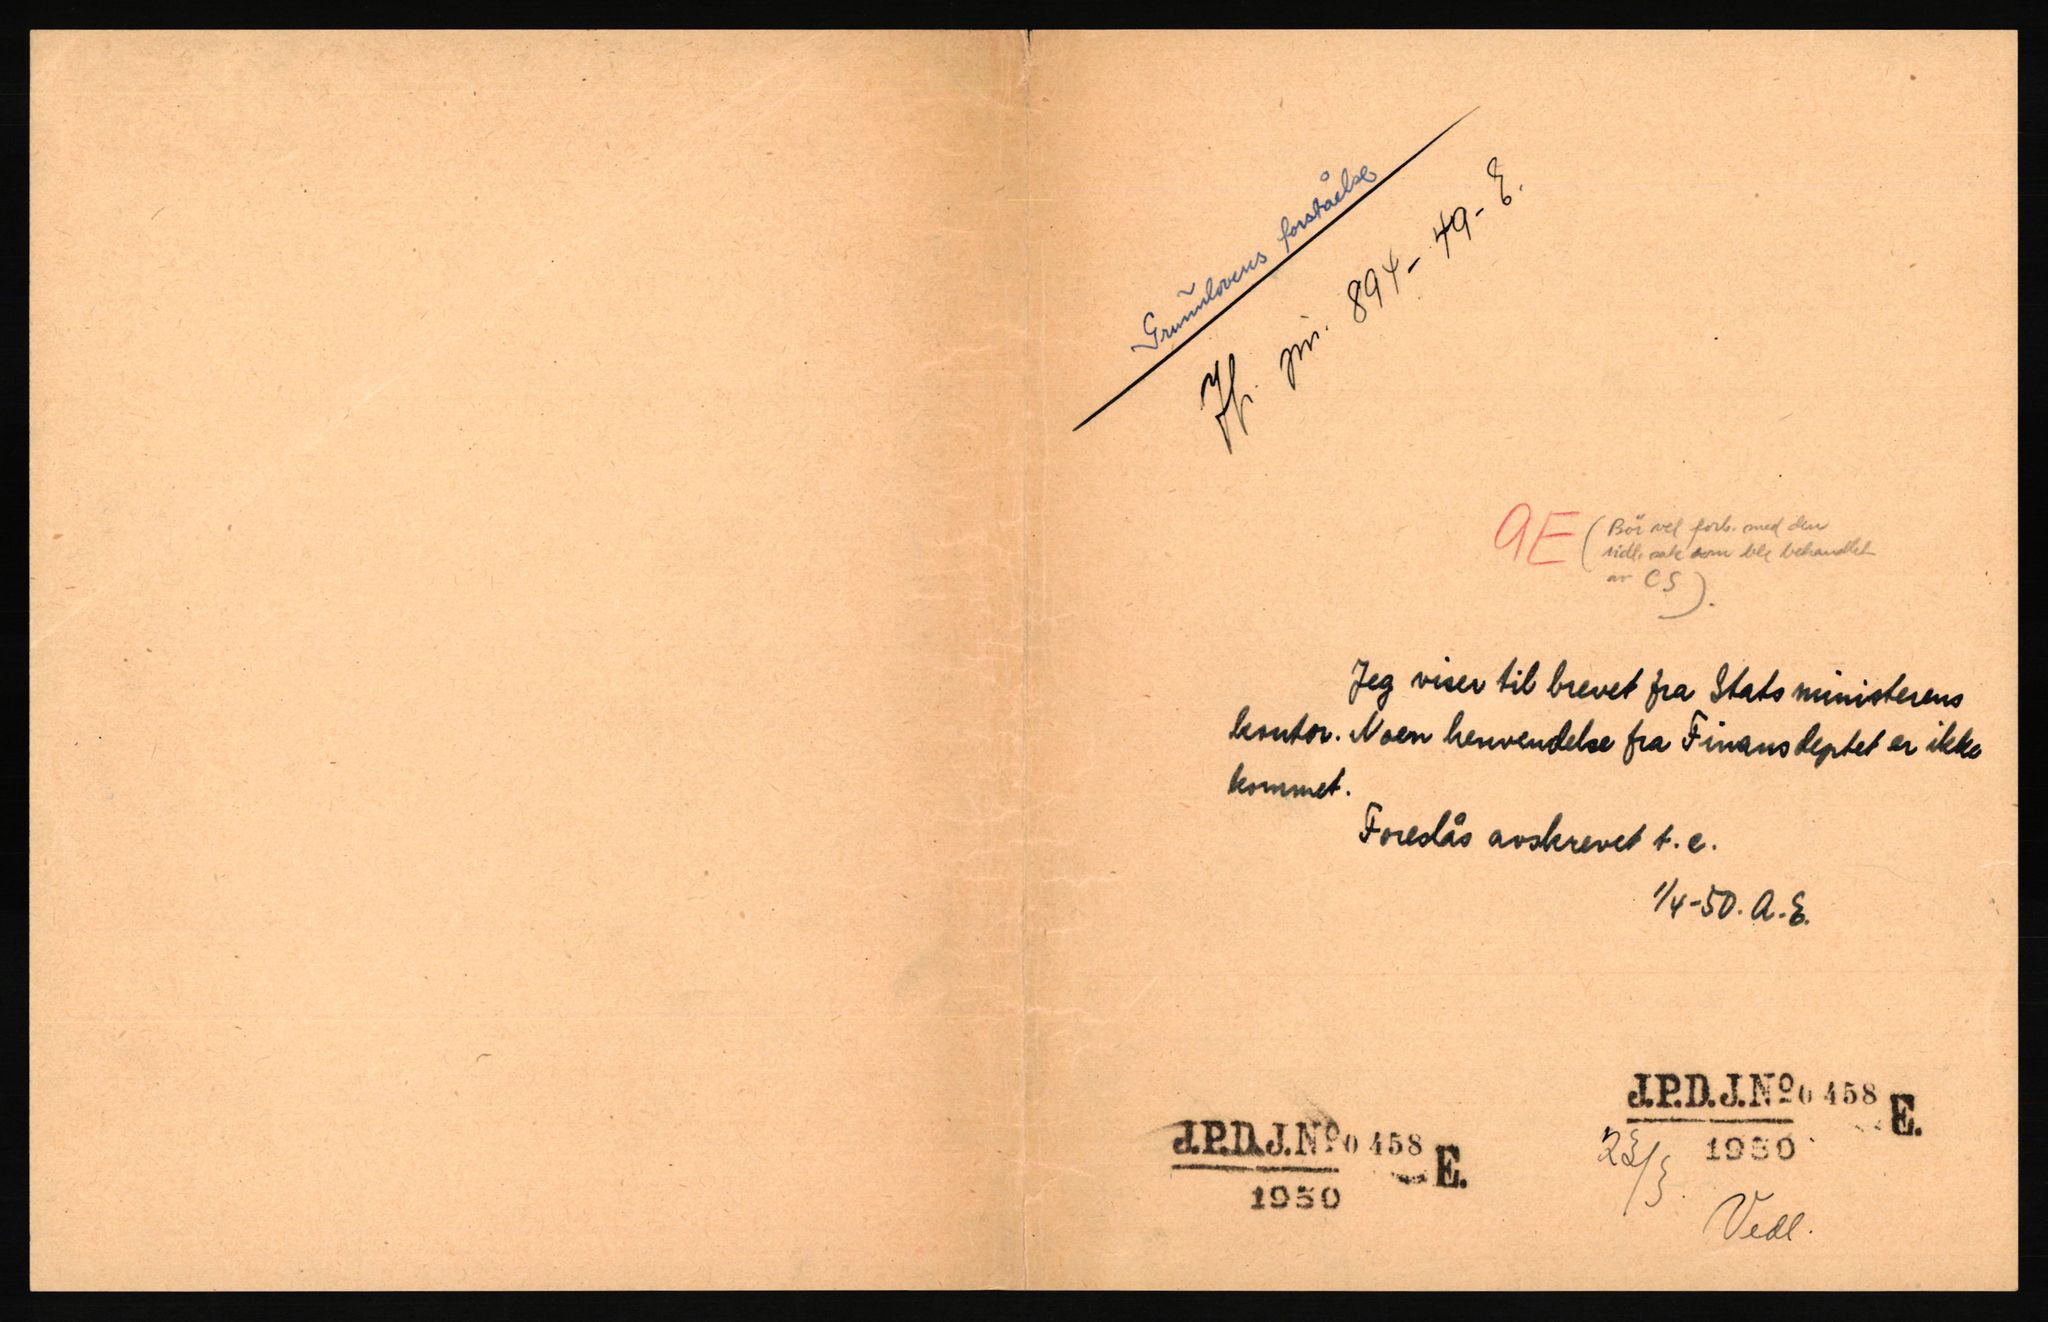 Grunnlovens forståelse
Jfr. jnr. 894-49-E.
AE (Bör vel forb. med den
tidl. sak som ble behandlet
av CS).
Jeg viser til brevet fra Statsministerens
kontor. Noen henvendelse fra Finansdeptet er ikke
kommet.
Foreslås avskrevet t.e.
1/4-50. A.E.
J.P.D.J.Nº 0458 E.
1950
J.P.D.J.Nº 0458 E.
1950
23/3.
Vedl.